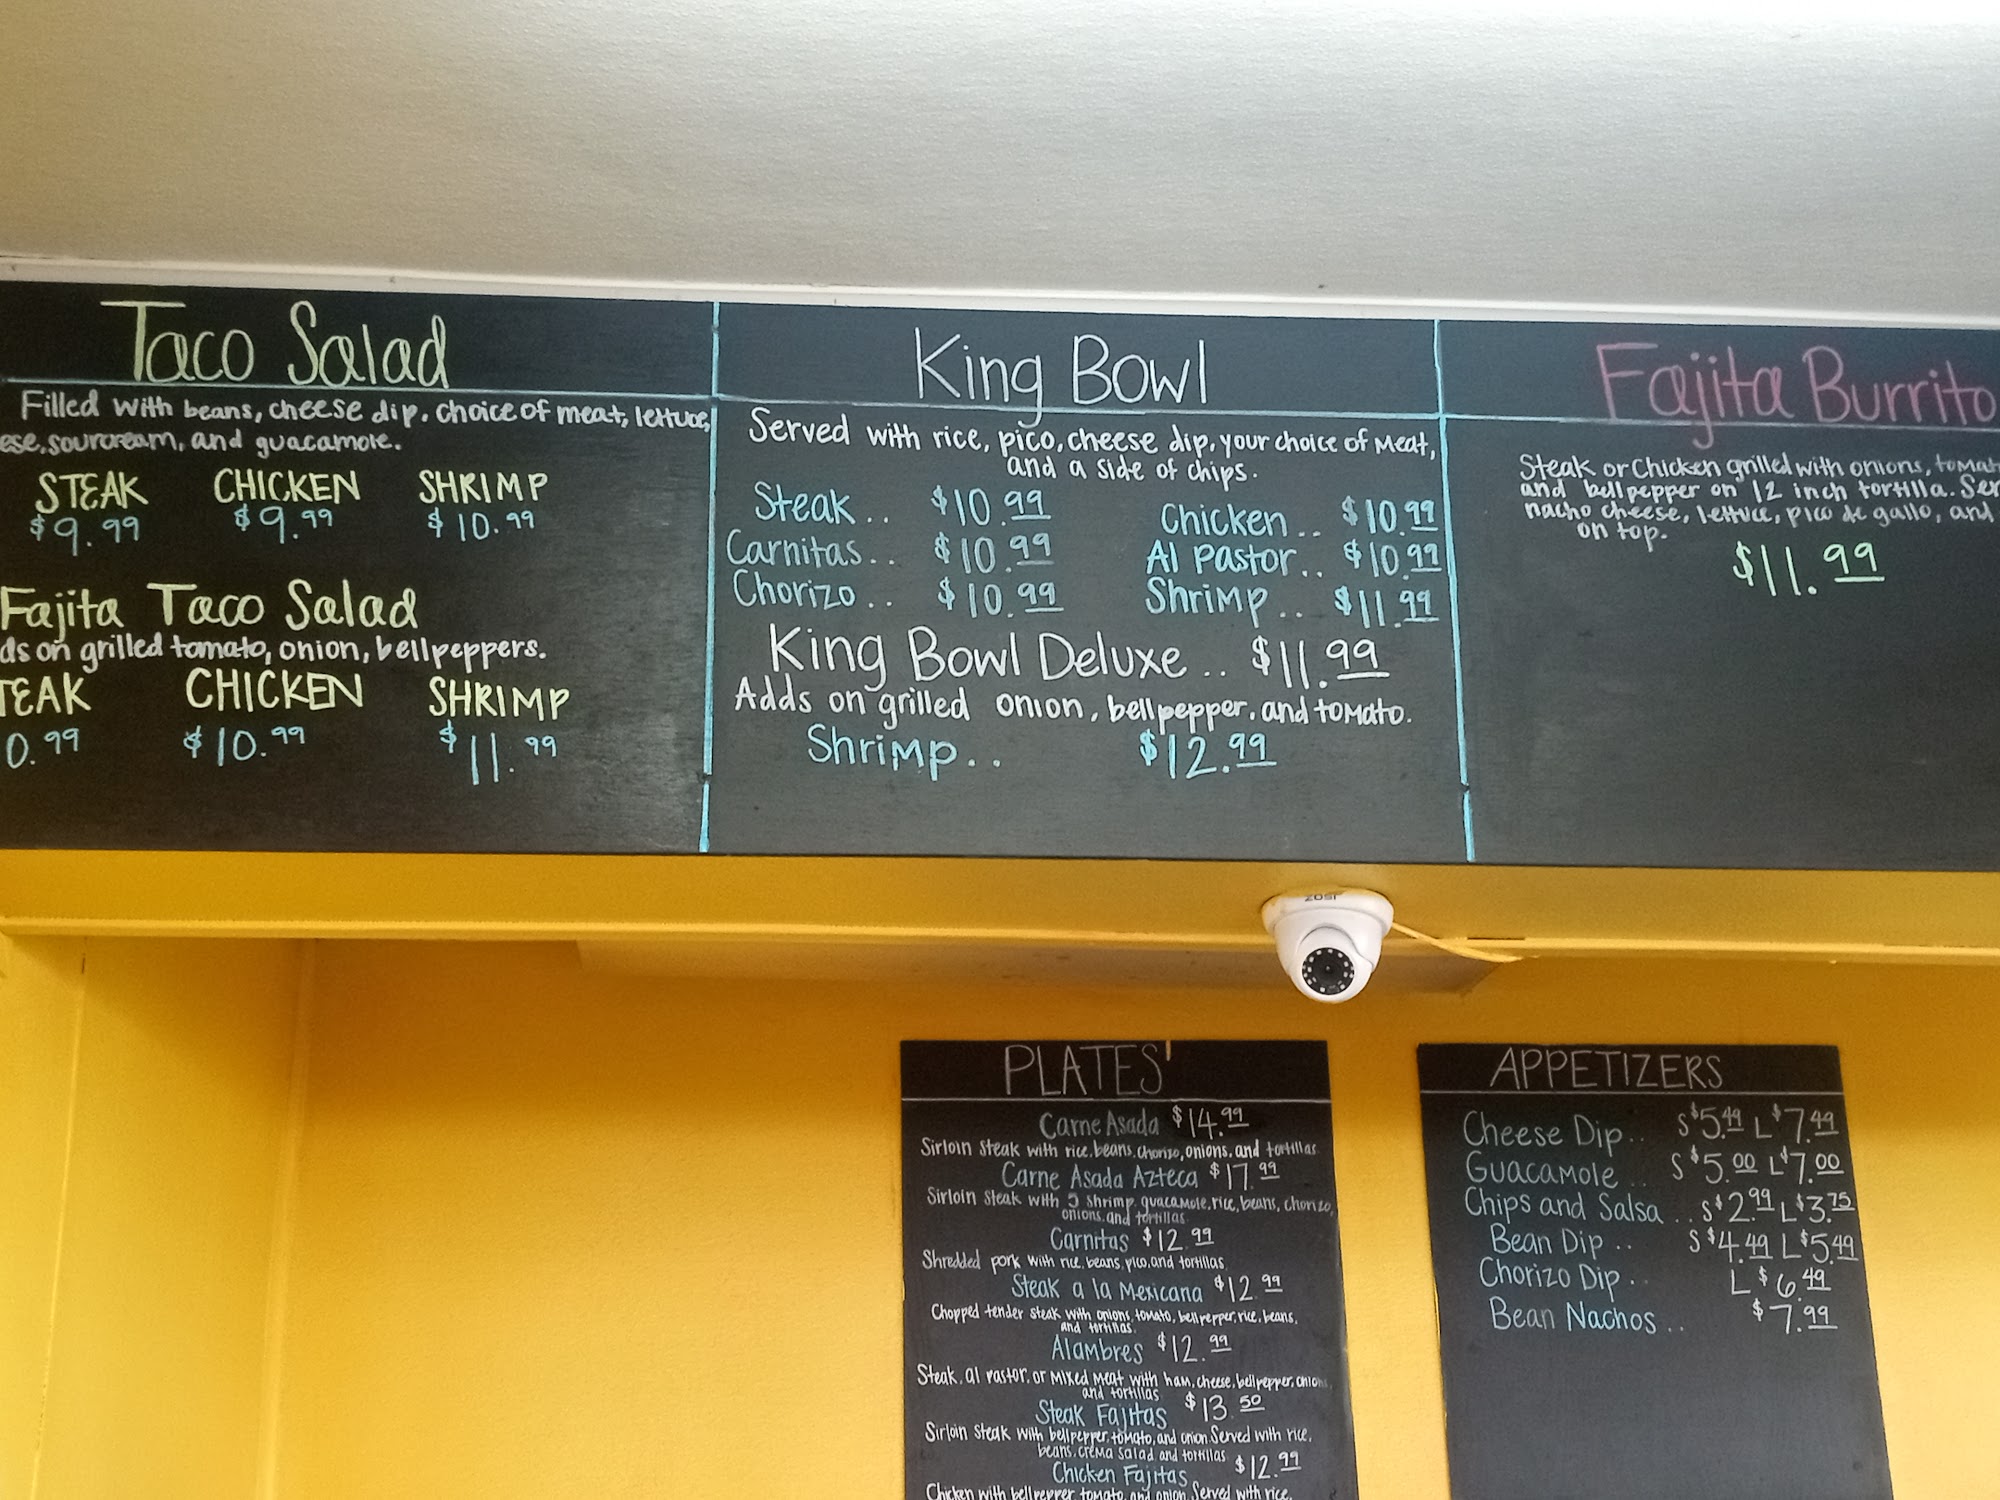 Taco Salad
Filled with beans, cheese dip, choice of meat, lettuce,
ese, sourcream, and guacamole.
STEAK CHICKEN SHRIMP
$9.99 $9.99 $10.99
Fajita Taco Salad
ds on grilled tomato, onion, bellpeppers.
TEAK CHICKEN SHRIMP
0.99 $10.99 $11.99
King Bowl
Served with rice, pico, cheese dip, your choice of meat,
and a side of chips.
Steak.. $10.99 Chicken.. $10.99
Carnitas.. $10.99 Al Pastor.. $10.99
Chorizo.. $10.99 Shrimp.. $11.99
King Bowl Deluxe.. $11.99
Adds on grilled onion, bellpepper, and tomato.
Shrimp.. $12.99
Fajita Burrito
Steak or Chicken grilled with onions, tomat
and bellpepper on 12 inch tortilla. Ser
nacho cheese, lettuce, pico de gallo, and
on top.
$11.99
ZOSI
PLATES
Carne Asada $14.99
Sirloin steak with rice, beans, chorizo, onions, and tortillas
Carne Asada Azteca $17.99
Sirloin steak with 5 shrimp, guacamole, rice, beans, chorizo,
onions, and tortillas
Carnitas $12.99
Shredded pork with rice, beans, pico, and tortillas
Steak a la Mexicana $12.99
Chopped tender steak with onions, tomato, bellpepper, rice, beans,
and tortillas.
Alambres $12.99
Steak, al pastor, or mixed meat with ham, cheese, bellpepper, onion,
and tortillas
Steak Fajitas $13.50
Sirloin steak with bellpepper, tomato, and onion Served with rice,
beans, crema salad and tortillas
Chicken Fajitas $12.99
Chicken with bellpepper, tomato, and onion. Served with rice,
APPETIZERS
Cheese Dip.. S $5.49 L $7.49
Guacamole.. S $5.00 L $7.00
Chips and Salsa.. S $2.99 L $3.75
Bean Dip.. S $4.49 L $5.49
Chorizo Dip.. L $6.49
Bean Nachos.. $7.99